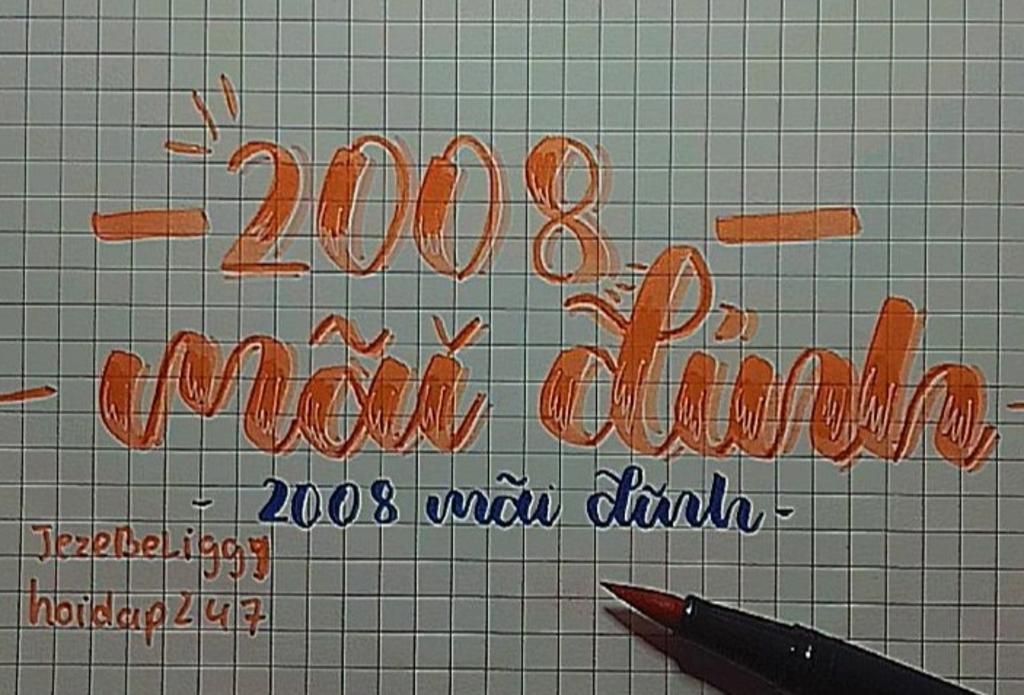 2008
mãi đỉnh
- 2008 mãi đỉnh -
JezeBeLiggy
hoidap247